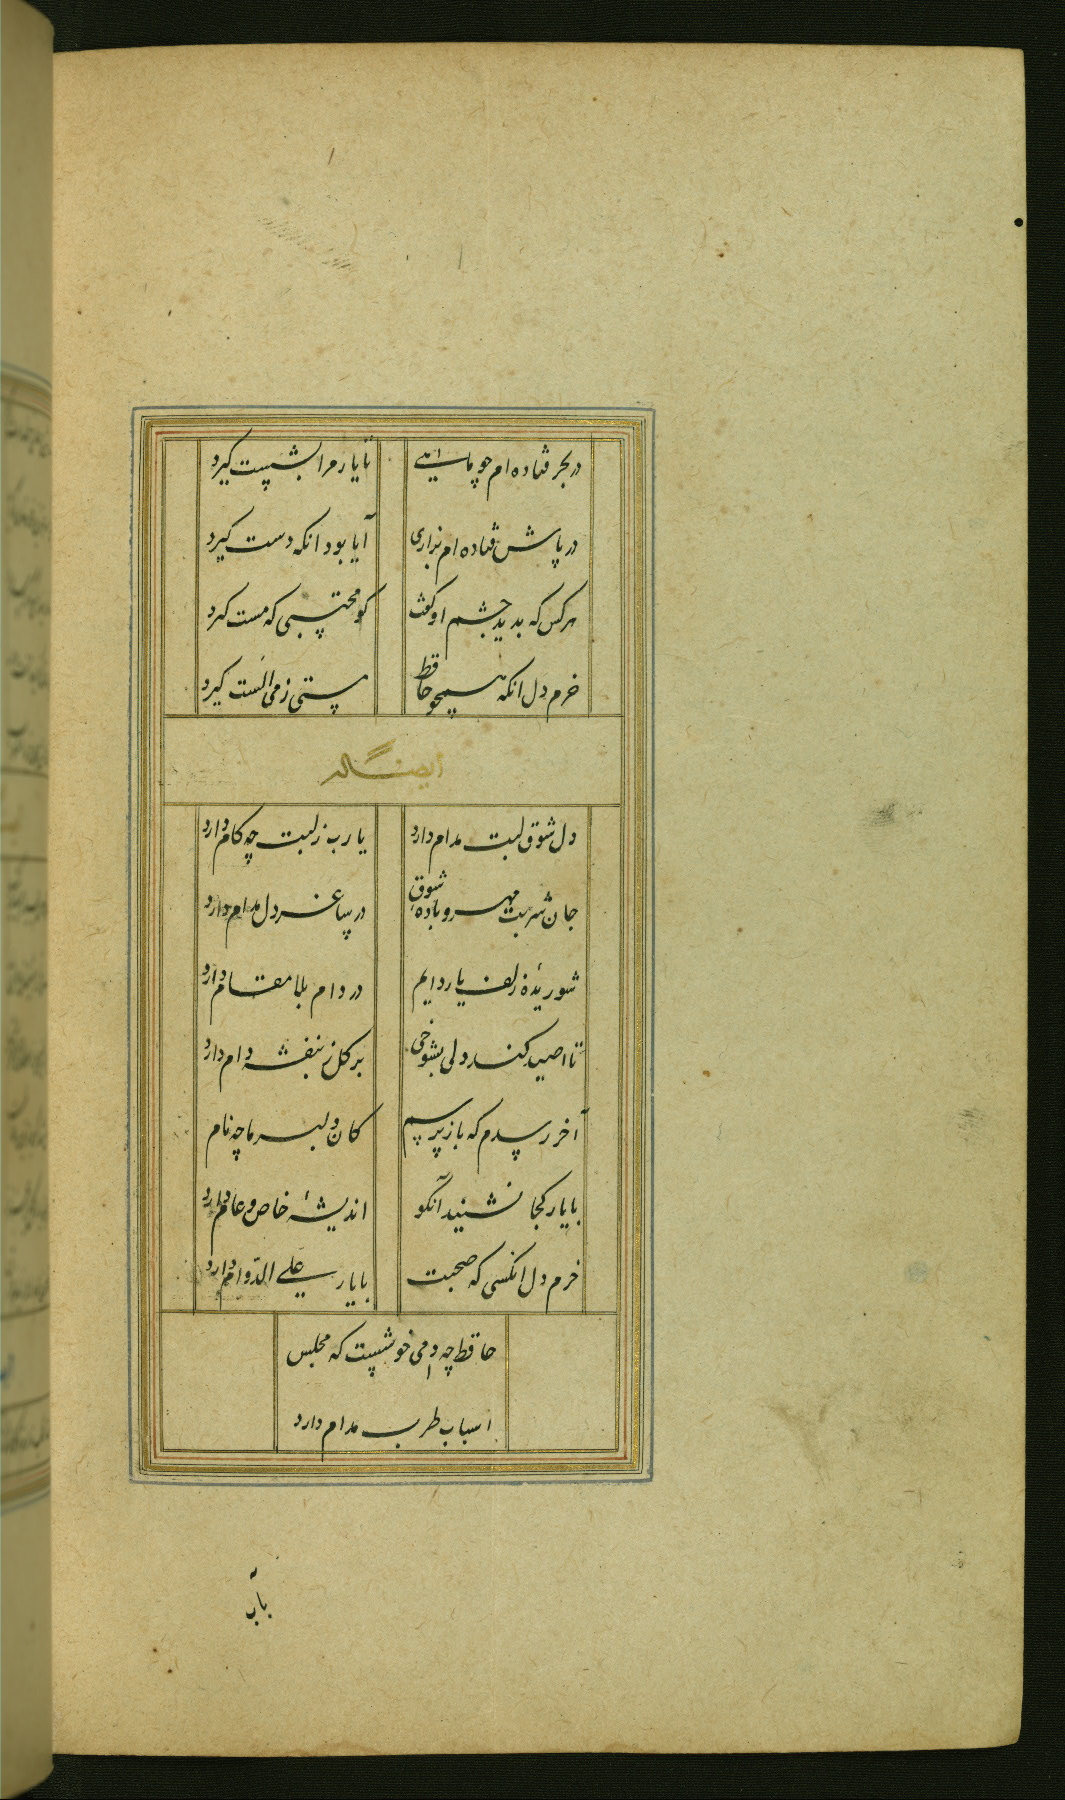 در بحر فتاده ام چو ماهی تا یار مرا بشست گیرد
در پاش فتاده ام بزاری آیا بود انکه دست گیرد
هر کس که بدید چشم او گفت کو محتسبی که مست گیرد
خرم دل انکه همچو حافظ مستی ز می الست گیرد
ایضا له
دل شوق لبت مدام دارد یا رب ز لبت چه کام دارد
جان شربت مهر و باده شوق در ساغر دل مدام دارد
شوریدهٔ زلف یار دایم در دام بلا مقام دارد
تا صید کند دلی بشوخی بر گل ز بنفشه دام دارد
آخر رسدم که باز پرسم کان دلبر ما چه نام
با یار کجا نشیند آنکو اندیشهٔ خاص و عام دارد
خرم دل انکسی که صحبت با یار علی الدوام دارد
حافظ چه دمی خوشست که مجلس
اسباب طرب مدام دارد